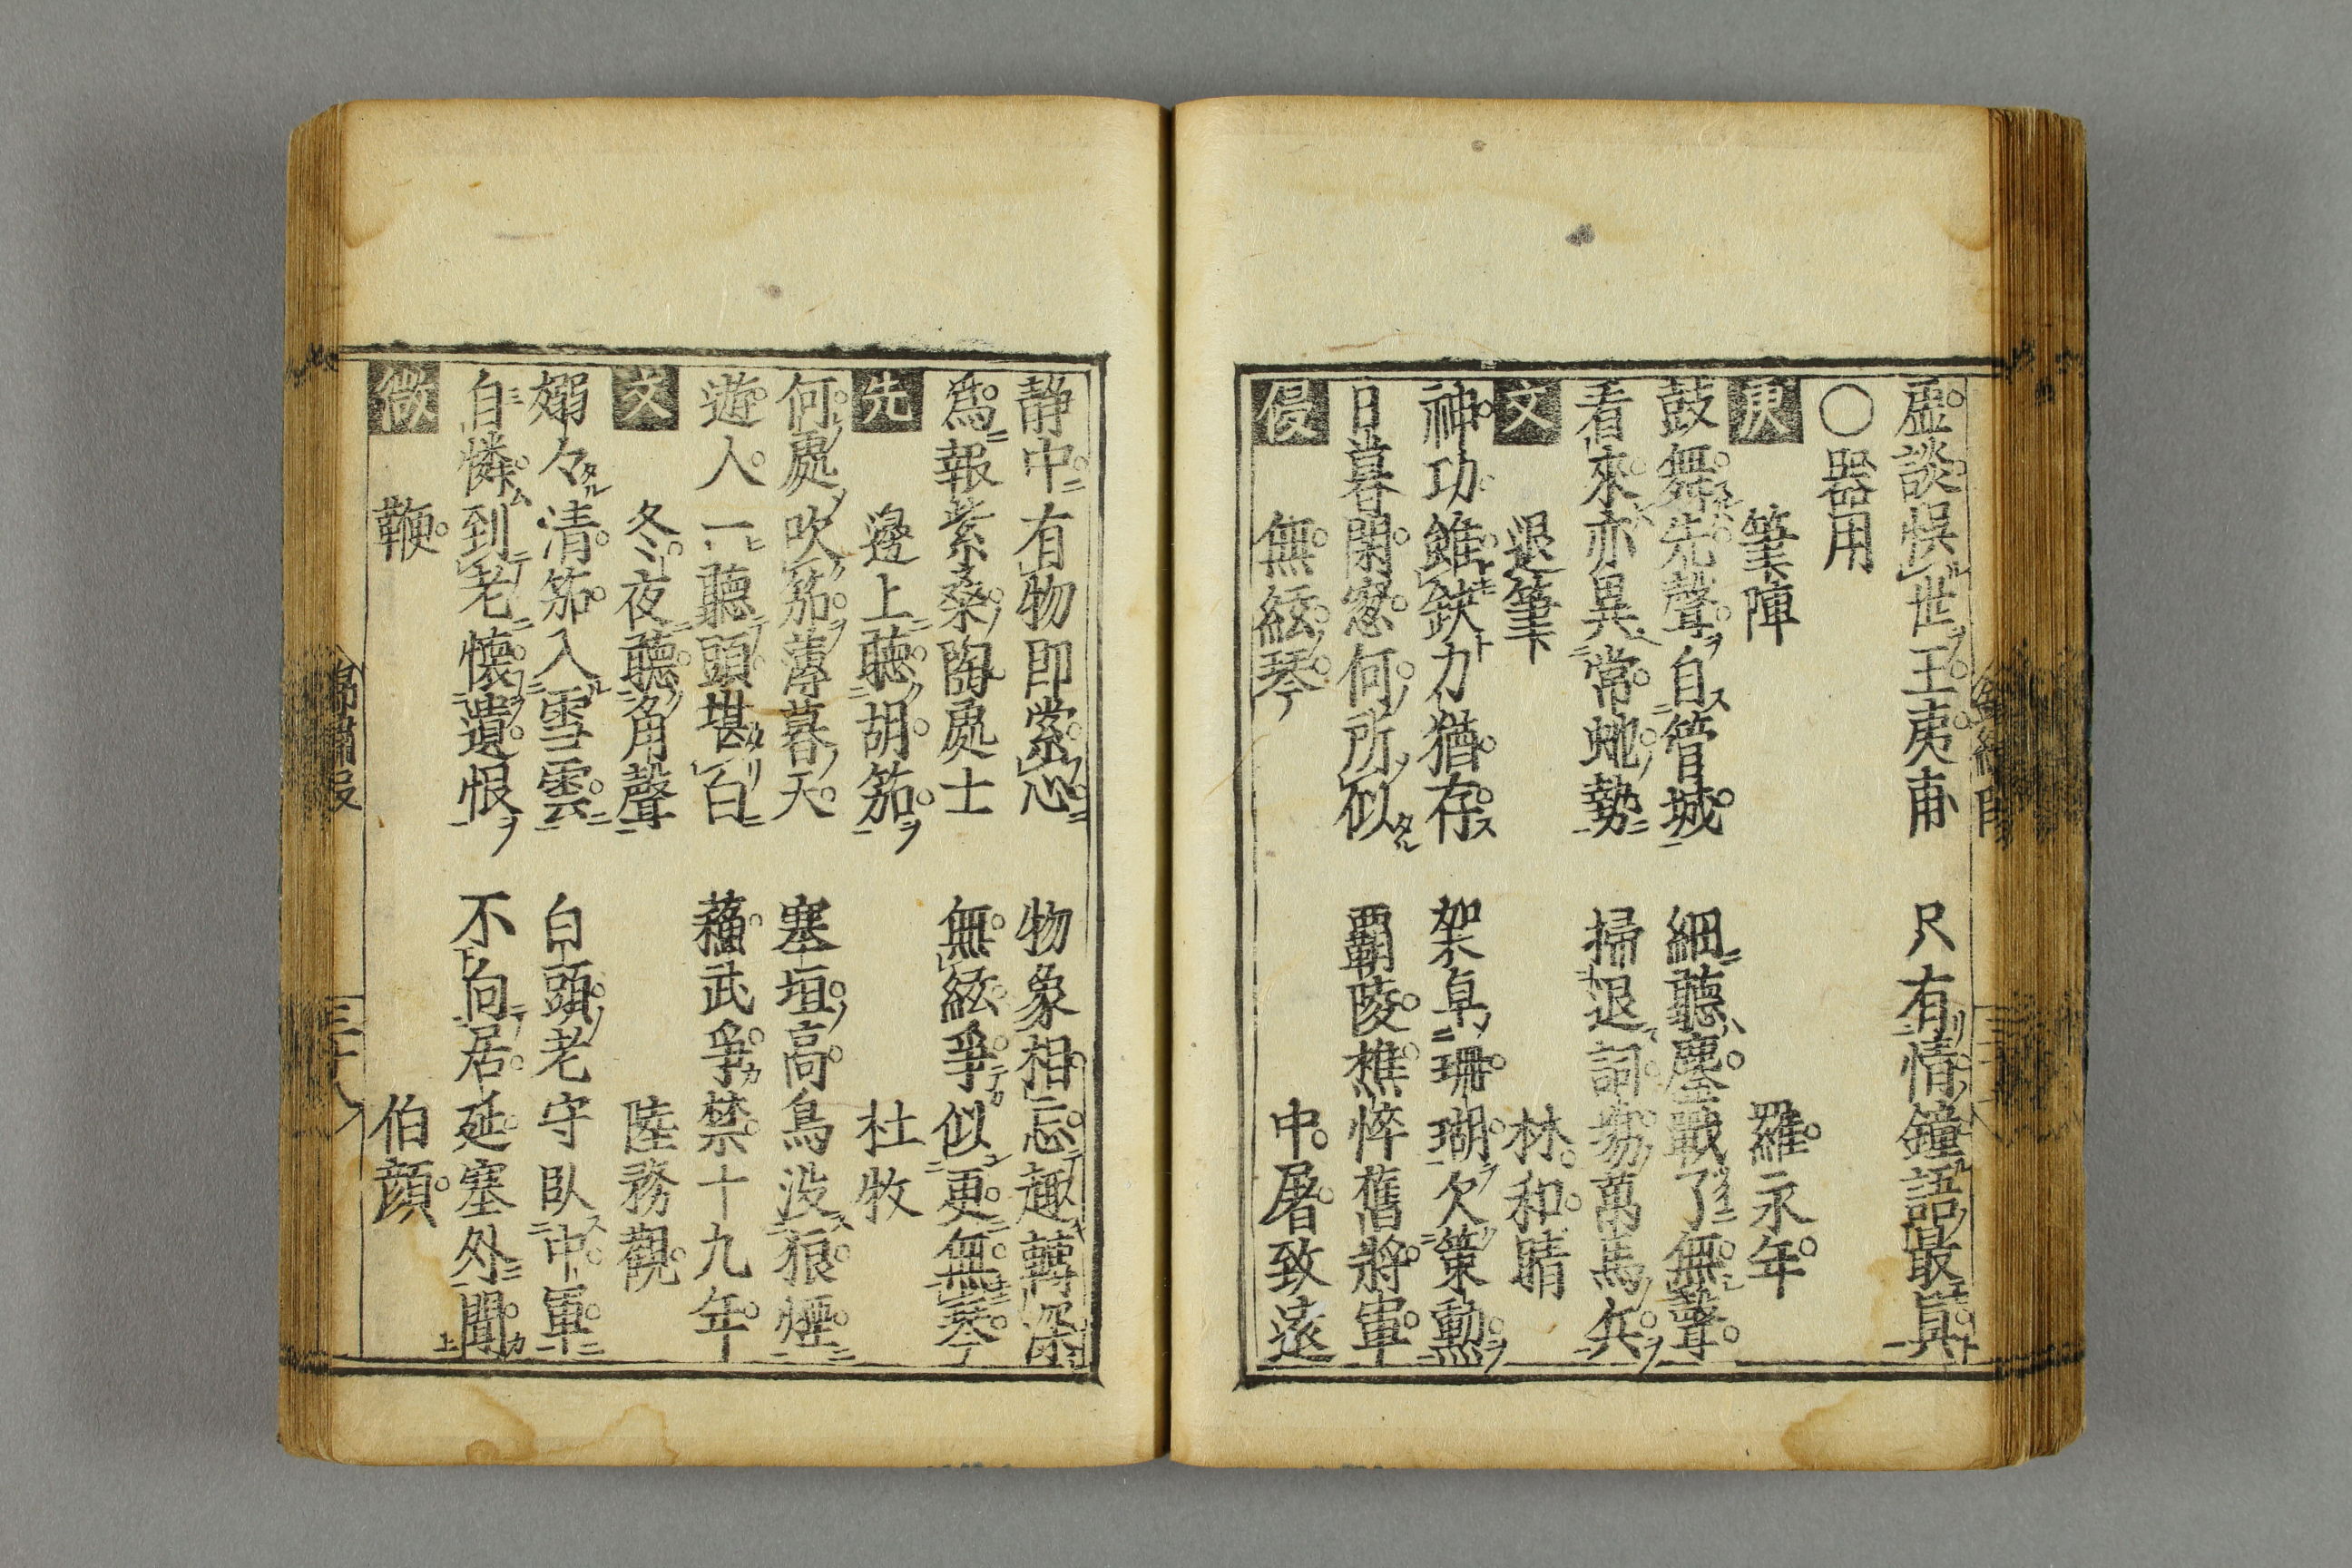 虚談悞世王夷甫　只有情鐘語最眞
〇器用
庚　筆陣　羅永年
鼓舞先聲自管城　細聽塵戰了無聲
看來亦異常虵勢　掃退詞塲萬馬兵
文　退筆　林和晴
神功雖缺力猶存　架阜珊瑚欠策勳
日暮閑窓何所似　覇陵憔悴舊將軍
侵　無絃琴　中屠致遠
静中有物即縈心　物象相忘趣轉深
爲報紫桑陶處士　無絃爭似更無琴
先　邊上聽胡笳　杜牧
何處吹笳薄暮天　塞垣高鳥没狼煙
遊人一聽頭堪白　蘓武爭禁十九年
文　冬夜聽角聲　陸務觀
嫋々清笳入雪雲　白頭老守臥中軍
自憐到老懷遺恨　不向居延塞外聞
微　鞭　伯顔
三十八